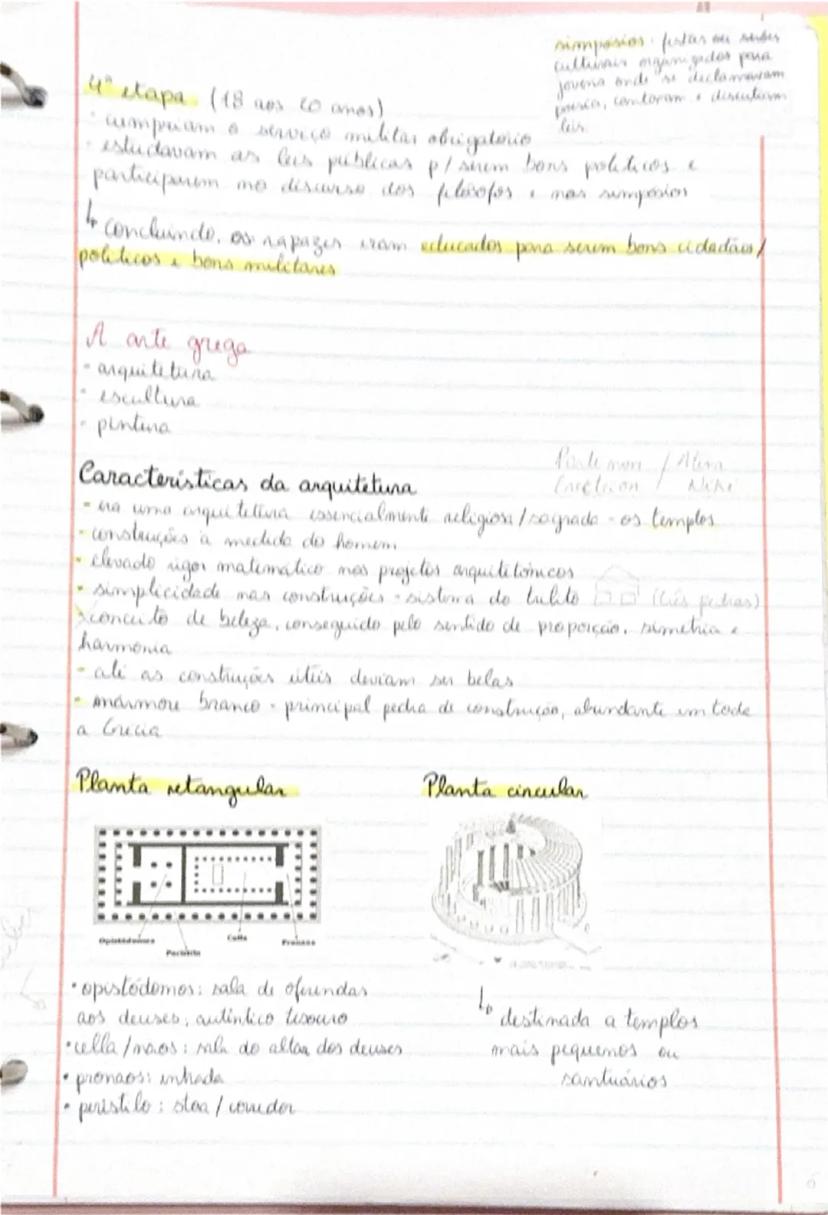 simpósios: festas ou saídas
culturais organizados para
jovens onde se declamavam
poesia, cantavam e discutiam
leis.
4ª etapa (18 aos 20 anos)
- cumpriam o serviço militar obrigatório
- estudavam as leis públicas p/ serem bons políticos e
participarem no discurso dos filósofos e nos simpósios
↳ concluindo, os rapazes eram educados para serem bons cidadãos/
políticos e bons militares
A arte grega
- arquitetura
- escultura
- pintura
Partenon / Atena
Erection / Niké
Características da arquitetura
- era uma arquitetura essencialmente religiosa/sagrada - os templos
- construções à medida do homem
- elevado rigor matemático nos projetos arquitetónicos
- simplicidade nas construções - sistema do trilito (três pedras)
conceito de beleza, conseguido pelo sentido de proporção, simetria e
harmonia
- até as construções úteis deviam ser belas
- mármore branco - principal pedra de construção, abundante em toda
a Grécia
Planta retangular
Planta circular
Opistódomos
Peristilo
Cella
Pronaos
• opistódomos: sala de oferendas
aos deuses, autêntico tesouro
• cella/naos: sala do altar dos deuses
• pronaos: entrada
• peristilo: stoa/corredor
↳ destinada a templos
mais pequenos ou
santuários
6